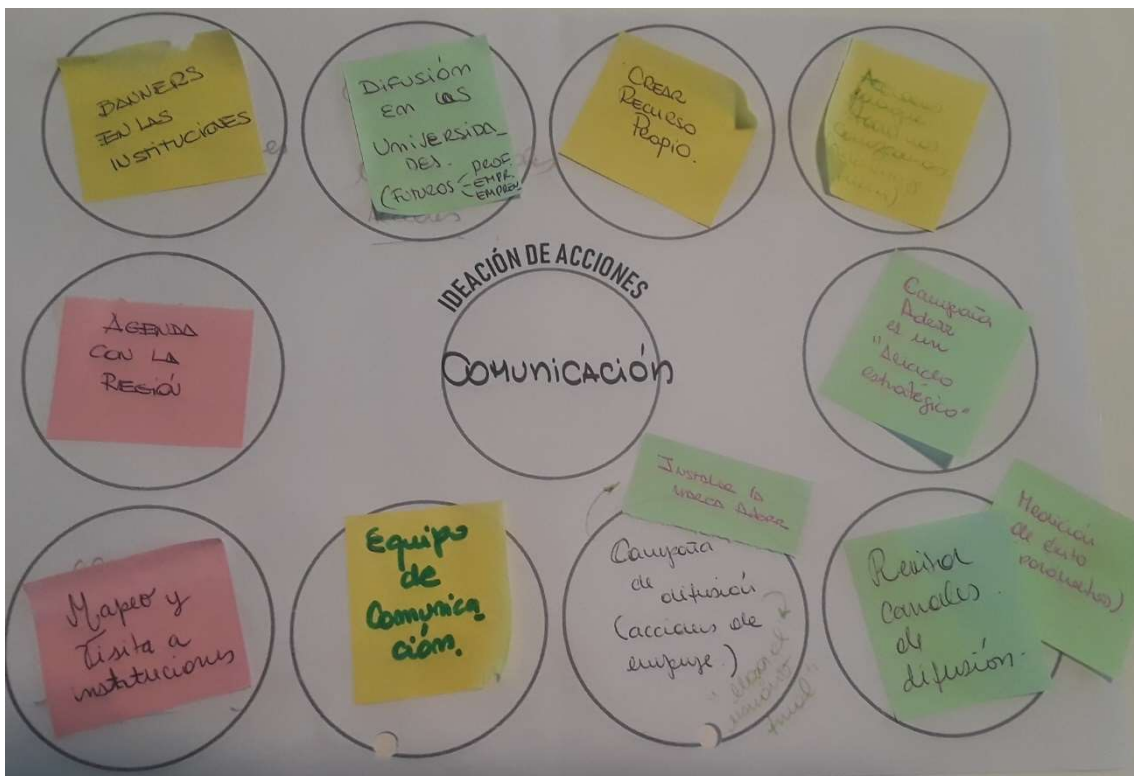 BANNERS
EN LAS
INSTITUCIONES
DIFUSIÓN
EN LAS
UNIVERSIDA_
DES.
(FUTUROS PROF.
EMPR.
EMPREN
CREAR
RECURSO
PROPIO.
AGENDA
CON LA
REGIÓN
IDEACIÓN DE ACCIONES
COMUNICACIÓN
Campaña
Aderr
es un
estratégico"
Mapeo y
Visita a
instituciones
Equipo
de
Comunica_
ción.
Instalar la
marca
Campaña
de difusión
(acciones de
empuje.)
Revisar
canales
de
difusión.
Medición
de éxito